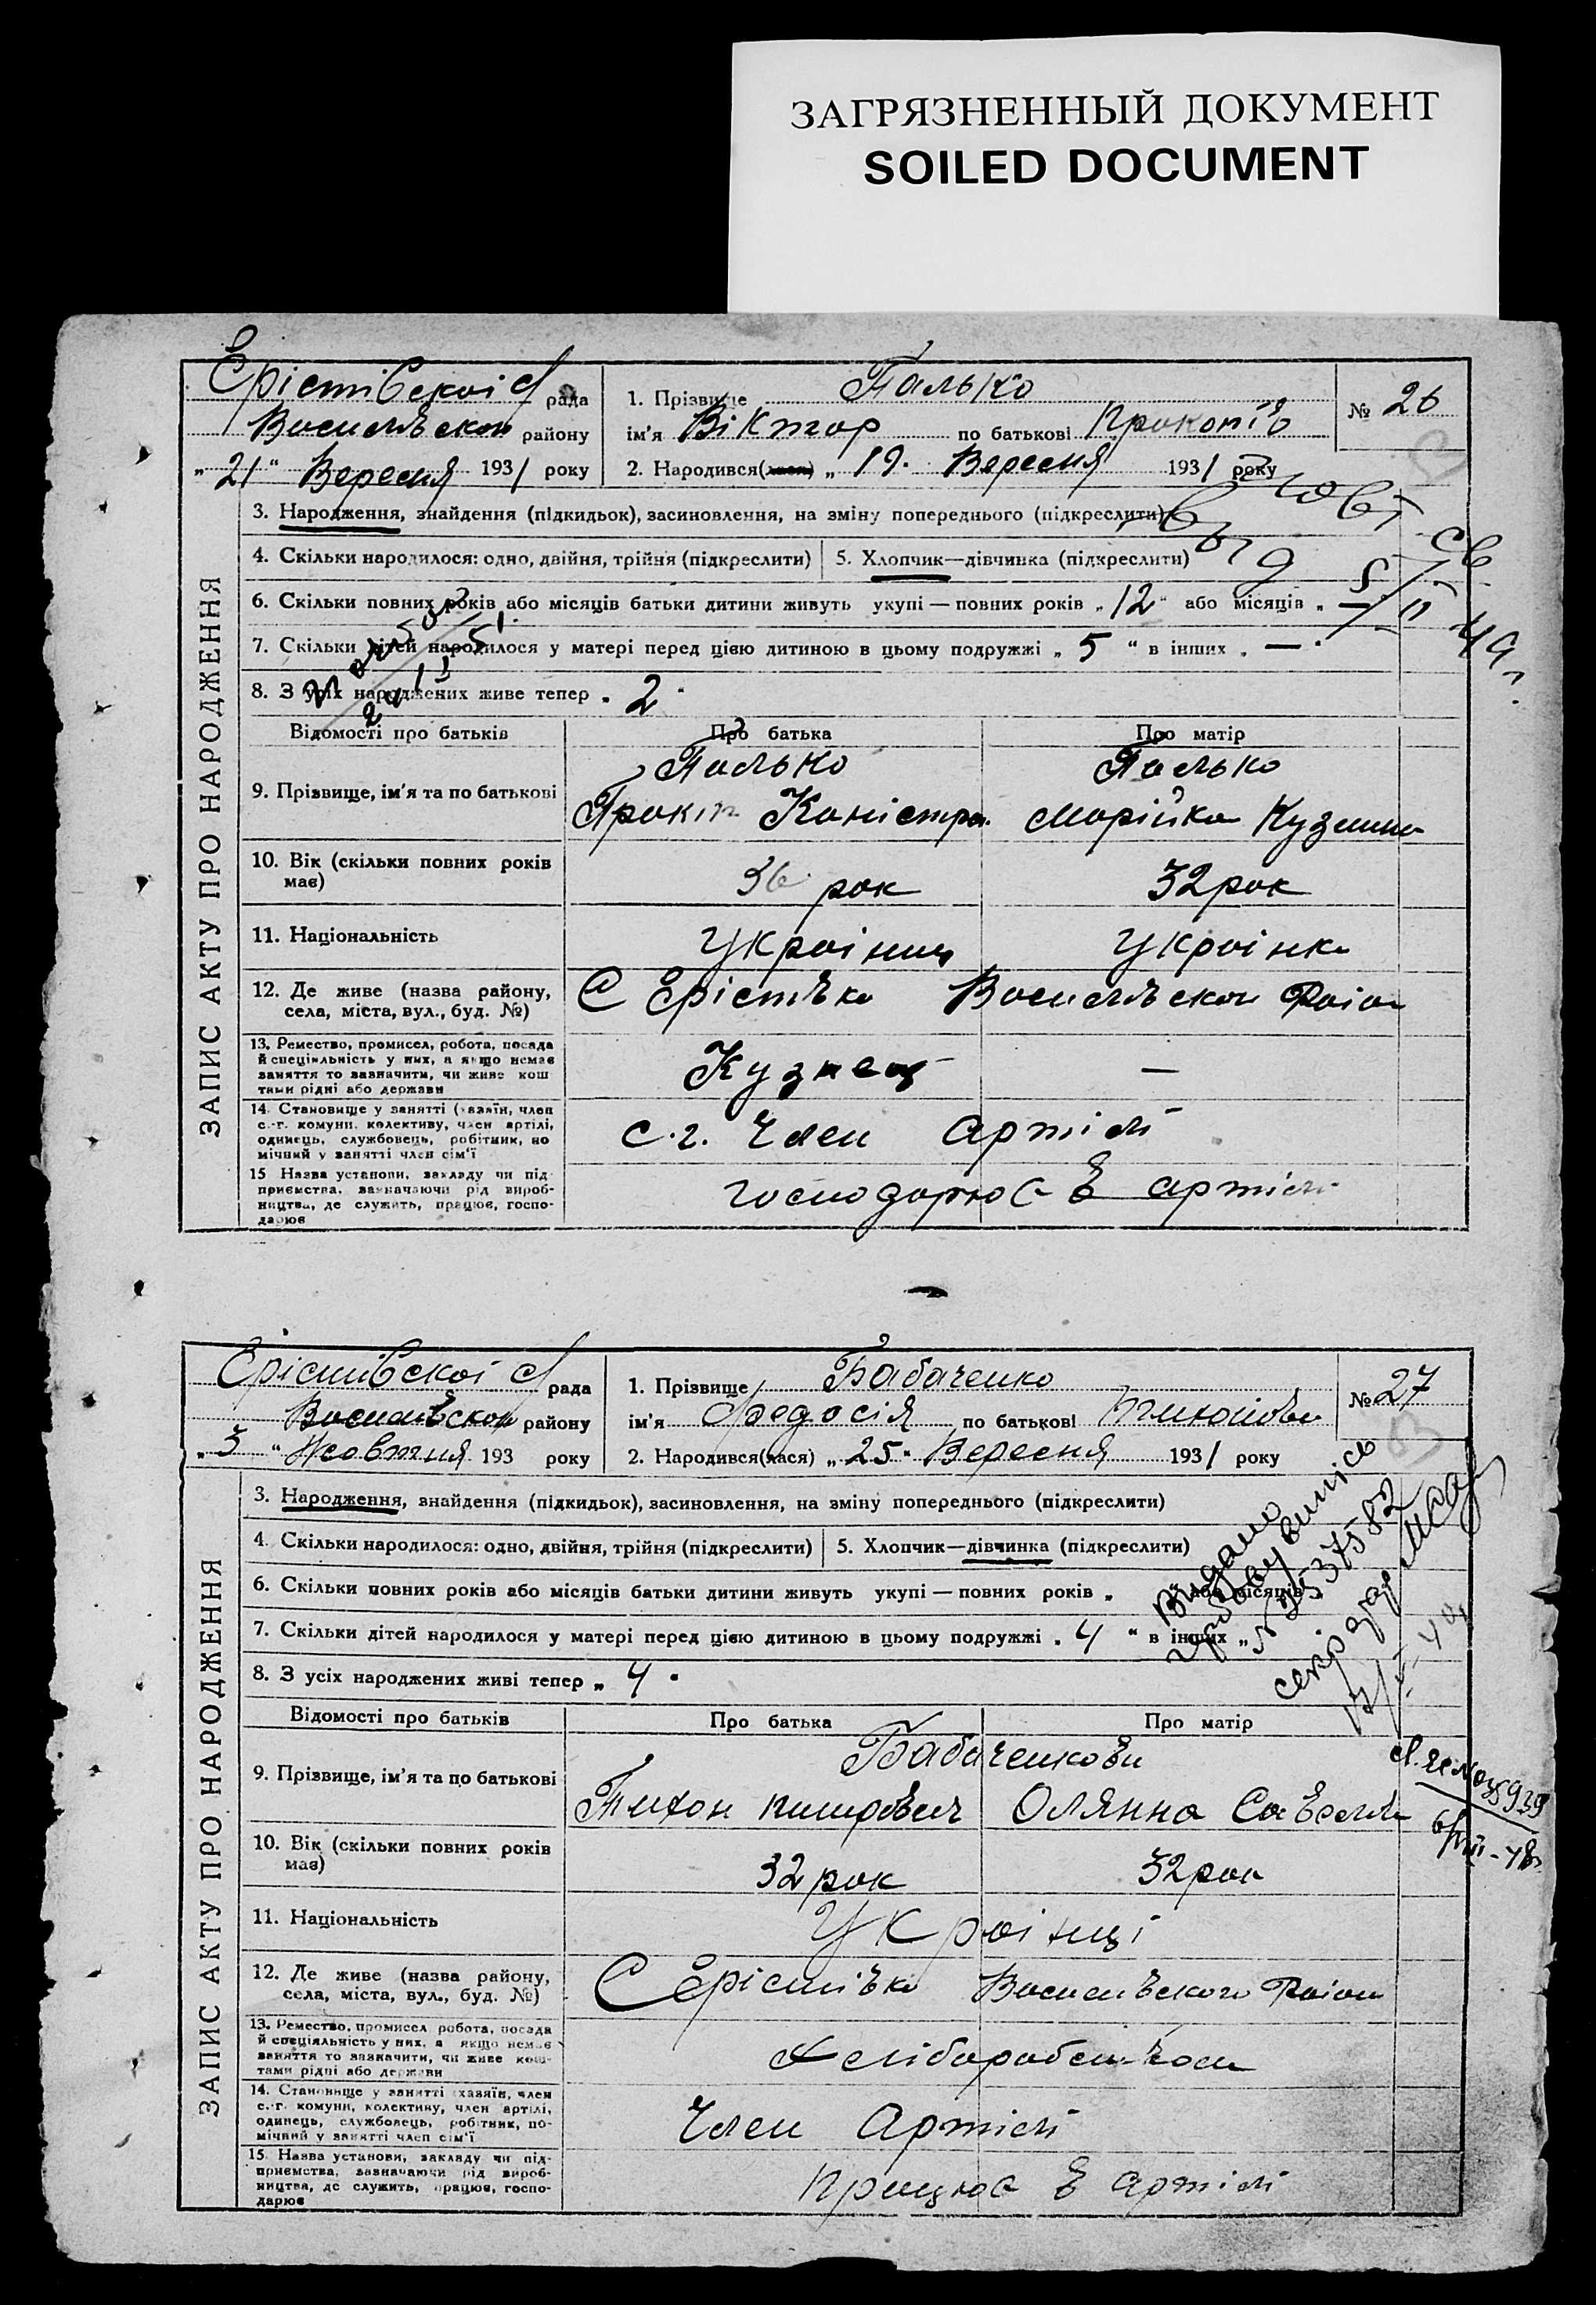 ЗАГРЯЗНЕННЫЙ ДОКУМЕНТ
SOILED DOCUMENT
Єрістівскої С рада
Василівског району
„21“ Вересня 1931 року
1. Прізвище Палько
ім'я Віктор по батькові Прокопів
2. Народився(лася) „19. Вересня 1931 року
№ 26
ЗАПИС АКТУ ПРО НАРОДЖЕННЯ
3. Народження, знайдення (підкидьок), засиновлення, на зміну попереднього (підкреслити)
4. Скільки народилося: одно, двійня, трійня (підкреслити)
5. Хлопчик—дівчинка (підкреслити)
6. Скільки повних років або місяців батьки дитини живуть укупі — повних років „12“ або місяців „—
7. Скільки дітей народилося у матері перед цією дитиною в цьому подружжі „5“ в інших „—“
8. З усіх народжених живе тепер „2“
Відомості про батьків
Про батька
Про матір
9. Прізвище, ім'я та по батькові
Палько
Палько
Прокіп Каністра.
Марійка Кузмина
10. Вік (скільки повних років має)
36 рок
32 рок
11. Національність
Украінец
Украінка
12. Де живе (назва району, села, міста, вул., буд. №)
С Єрістівка Василівског Район
13. Ремество, промисел, робота, посада й спеціяльність у них, а якщо немає заняття то зазначити, чи живе коштами рідні або держави
Кузнец
—
14. Становище у занятті (хазяїн, член с.-г. комуни, колективу, член артілі, одинець, службовець, робітник, помічний у занятті член сім'ї
с.г. Член Артілі
15 Назва установи, закладу чи підприємства, зазначаючи рід виробництва, де служить, працює, господарює
господарює в артілі
Єрістівскої С рада
Василівског району
„3“ Жовтня 193 року
1. Прізвище Бабаченко
ім'я Федосія по батькові Тихонови
2. Народився(лася) „25“ Вересня 1931 року
№ 27
ЗАПИС АКТУ ПРО НАРОДЖЕННЯ
3. Народження, знайдення (підкидьок), засиновлення, на зміну попереднього (підкреслити)
4. Скільки народилося: одно, двійня, трійня (підкреслити)
5. Хлопчик—дівчинка (підкреслити)
6. Скільки повних років або місяців батьки дитини живуть укупі — повних років „ або місяців
7. Скільки дітей народилося у матері перед цією дитиною в цьому подружжі „4“ в інших „
8. З усіх народжених живі тепер „4“
Видано
випись
№ 537582
Відомості про батьків
Про батька
Про матір
9. Прізвище, ім'я та по батькові
Бабаченкови
Тихон
Олянна Савелм
10. Вік (скільки повних років має)
32 рок
32 рок
11. Національність
Украінці
12. Де живе (назва району, села, міста, вул., буд. №)
С Єрістівка Василівского Район
13. Ремество, промисел робота, посада й спеціяльність у них, а якщо немає заняття то зазначити, чи живе коштами рідні або держави
14. Становище у занятті хазяїн, член с.-г. комуни, колективу, член артілі, одинець, службовець, робітник, помічний у занятті член сім'ї
Член Артілі
15. Назва установи, закладу чи підприємства, зазначаючи рід виробництва, де служить, працює, господарює
Працює в артілі